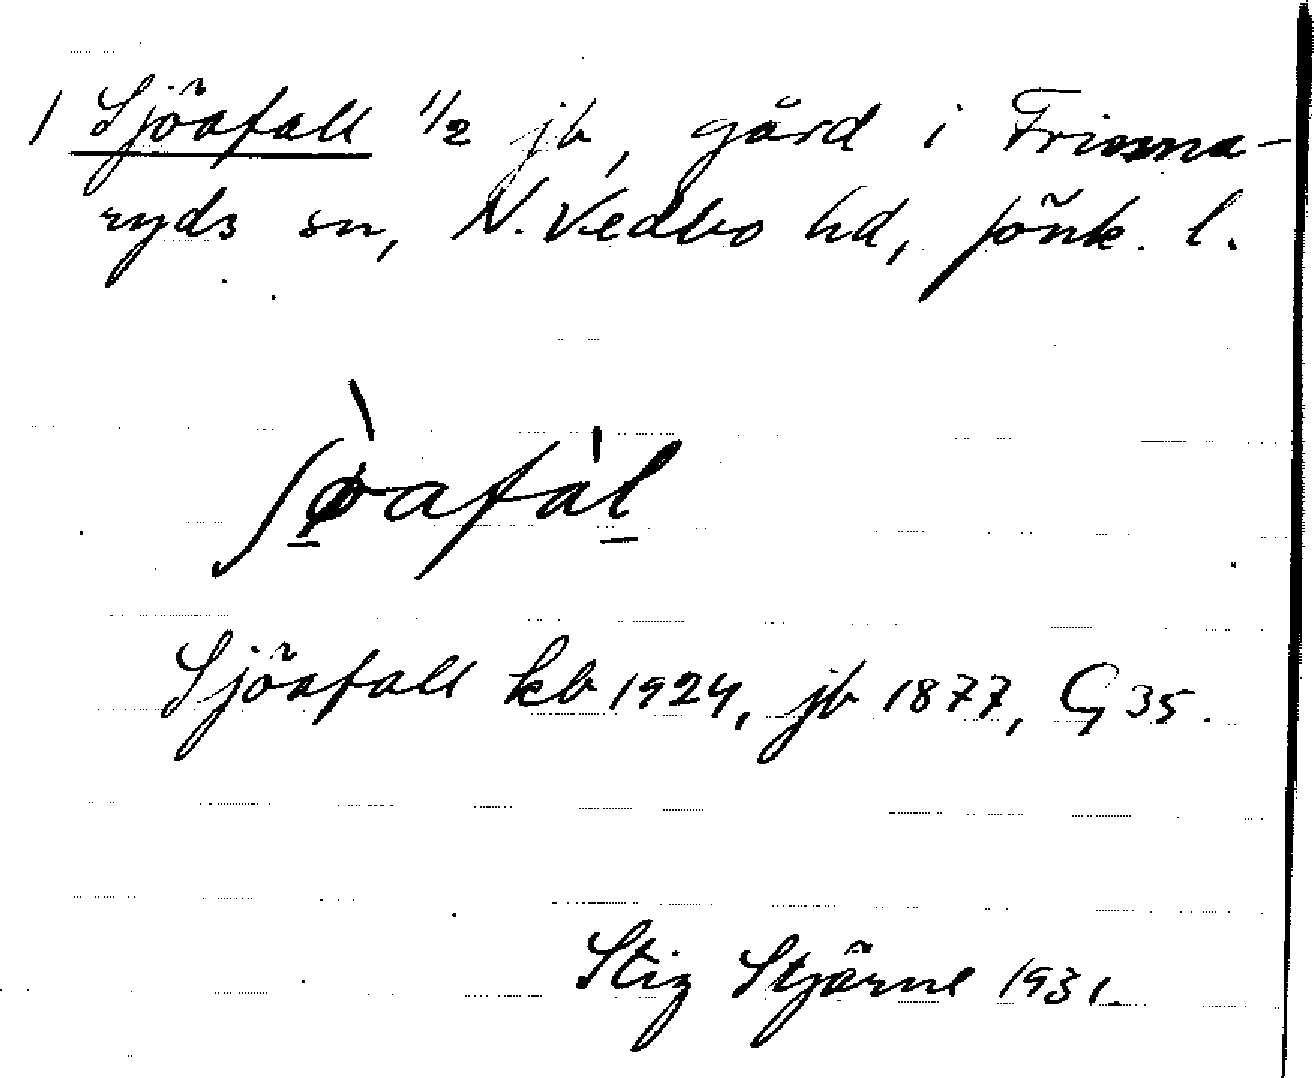 1 Sjöafall 1/2 jb, gård i Frinna-
ryds sn, N. Vedbo hd, Jönk. l.
ʃøafàl
Sjöafall kb 1924, jb 1877, G 35.
Stig Stjärne 1931.